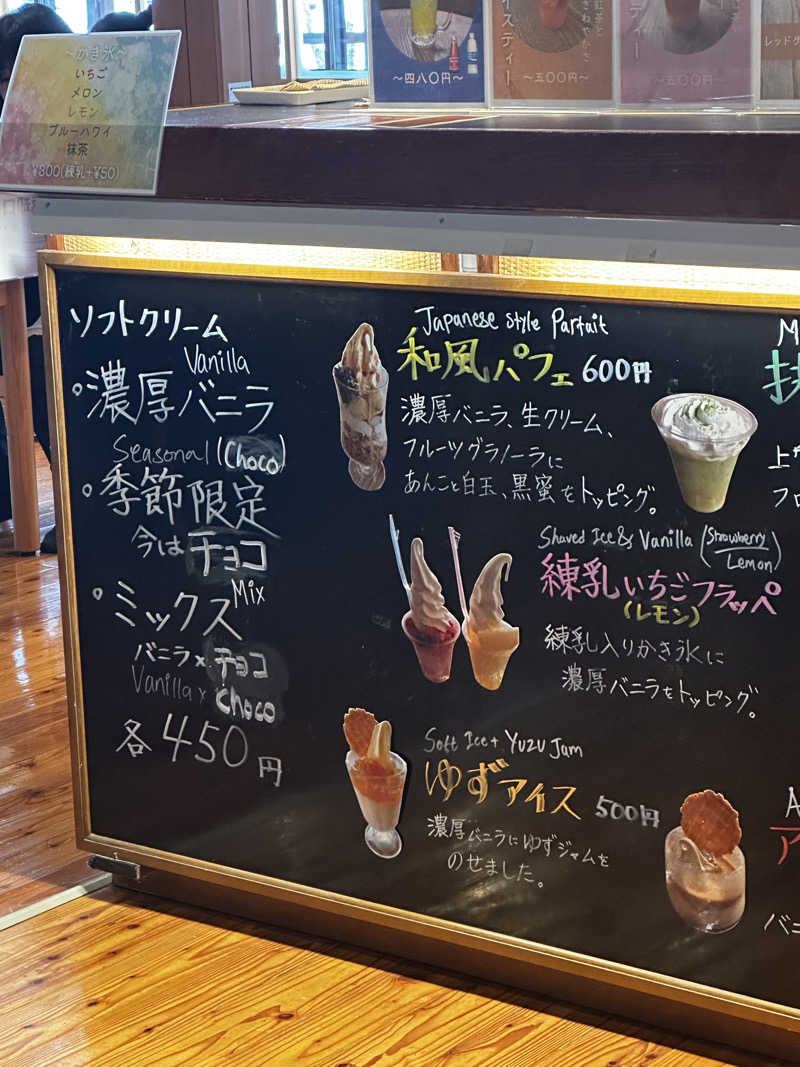 ~かき氷~
いちご
メロン
レモン
ブルーハワイ
抹茶
¥800(練乳+¥50)
~四八〇円~
スティー
~五〇〇円~
ティー
~五〇〇円~
レッドグ
ソフトクリーム
Vanilla
濃厚バニラ
Seasonal (Choco)
季節限定
今は チョコ
ミックス Mix
バニラ×チョコ
Vanilla × Choco
各 450円
Japanese style Parfait
和風パフェ 600円
濃厚バニラ、生クリーム、
フルーツグラノーラに
あんこと白玉、黒蜜をトッピング。
Shaved Ice & Vanilla (Strawberry
Lemon)
練乳いちごフラッペ
(レモン)
練乳入りかき氷に
濃厚バニラをトッピング。
Soft Ice + Yuzu Jam
ゆずアイス 500円
濃厚バニラにゆずジャムを
のせました。
M
抹
上
フロ
A
ア
バニ